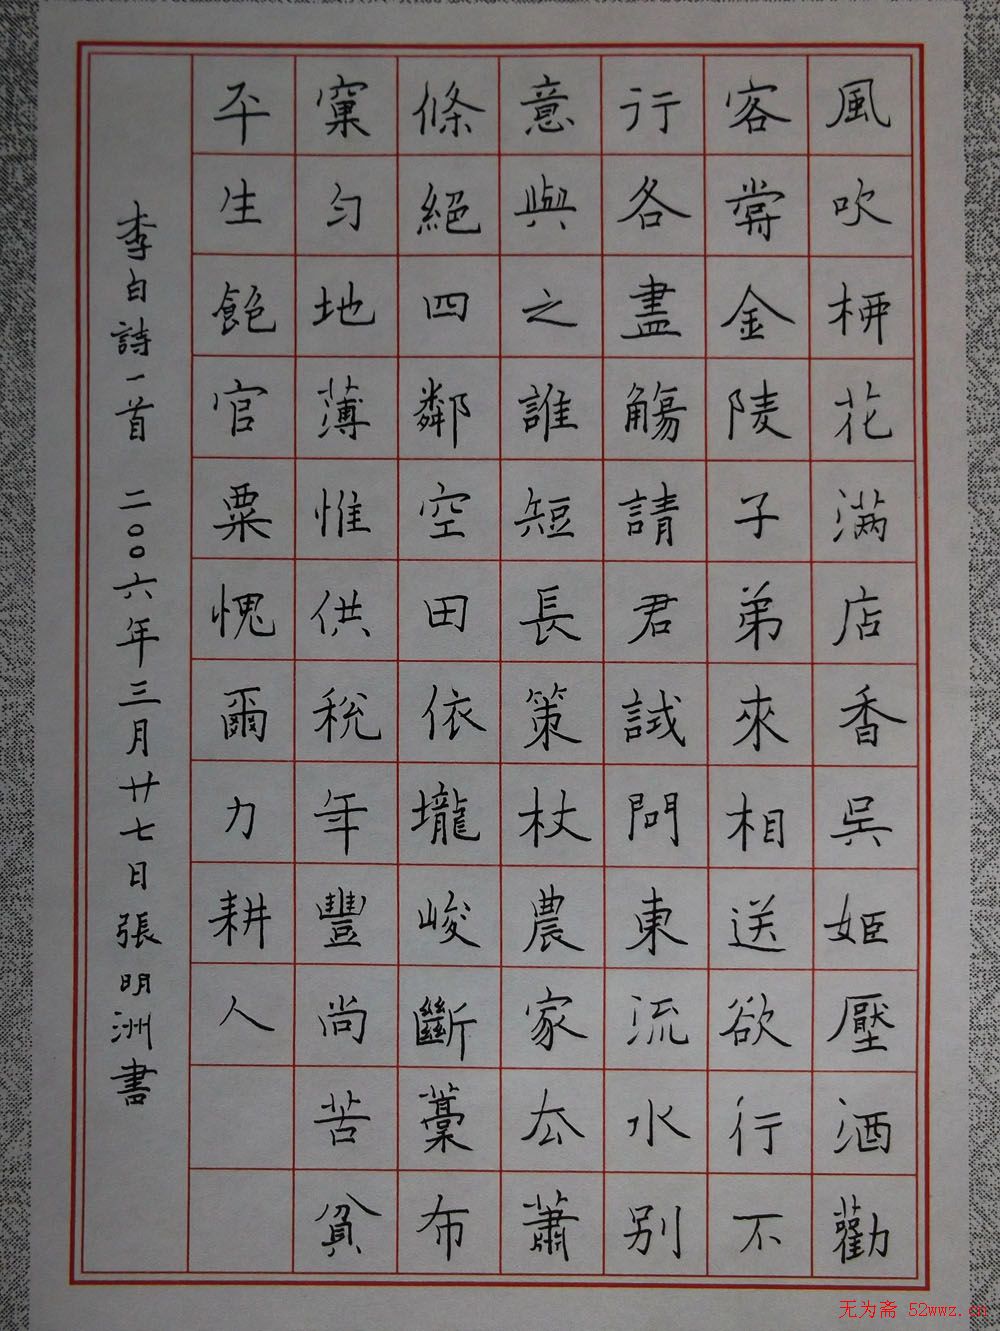 風吹柳花滿店香吳姬壓酒勸
客嘗金陵子弟來相送欲行不
行各盡觴請君試問東流水別
意與之誰短長策杖農家去蕭
條絕四鄰空田依壠峻斷藁布
窠勻地薄惟供稅年豐尚苦貧
平生飽官粟愧爾力耕人
李白詩一首 二〇〇六年三月廿七日張明洲書
无为斋 52wwz.cn